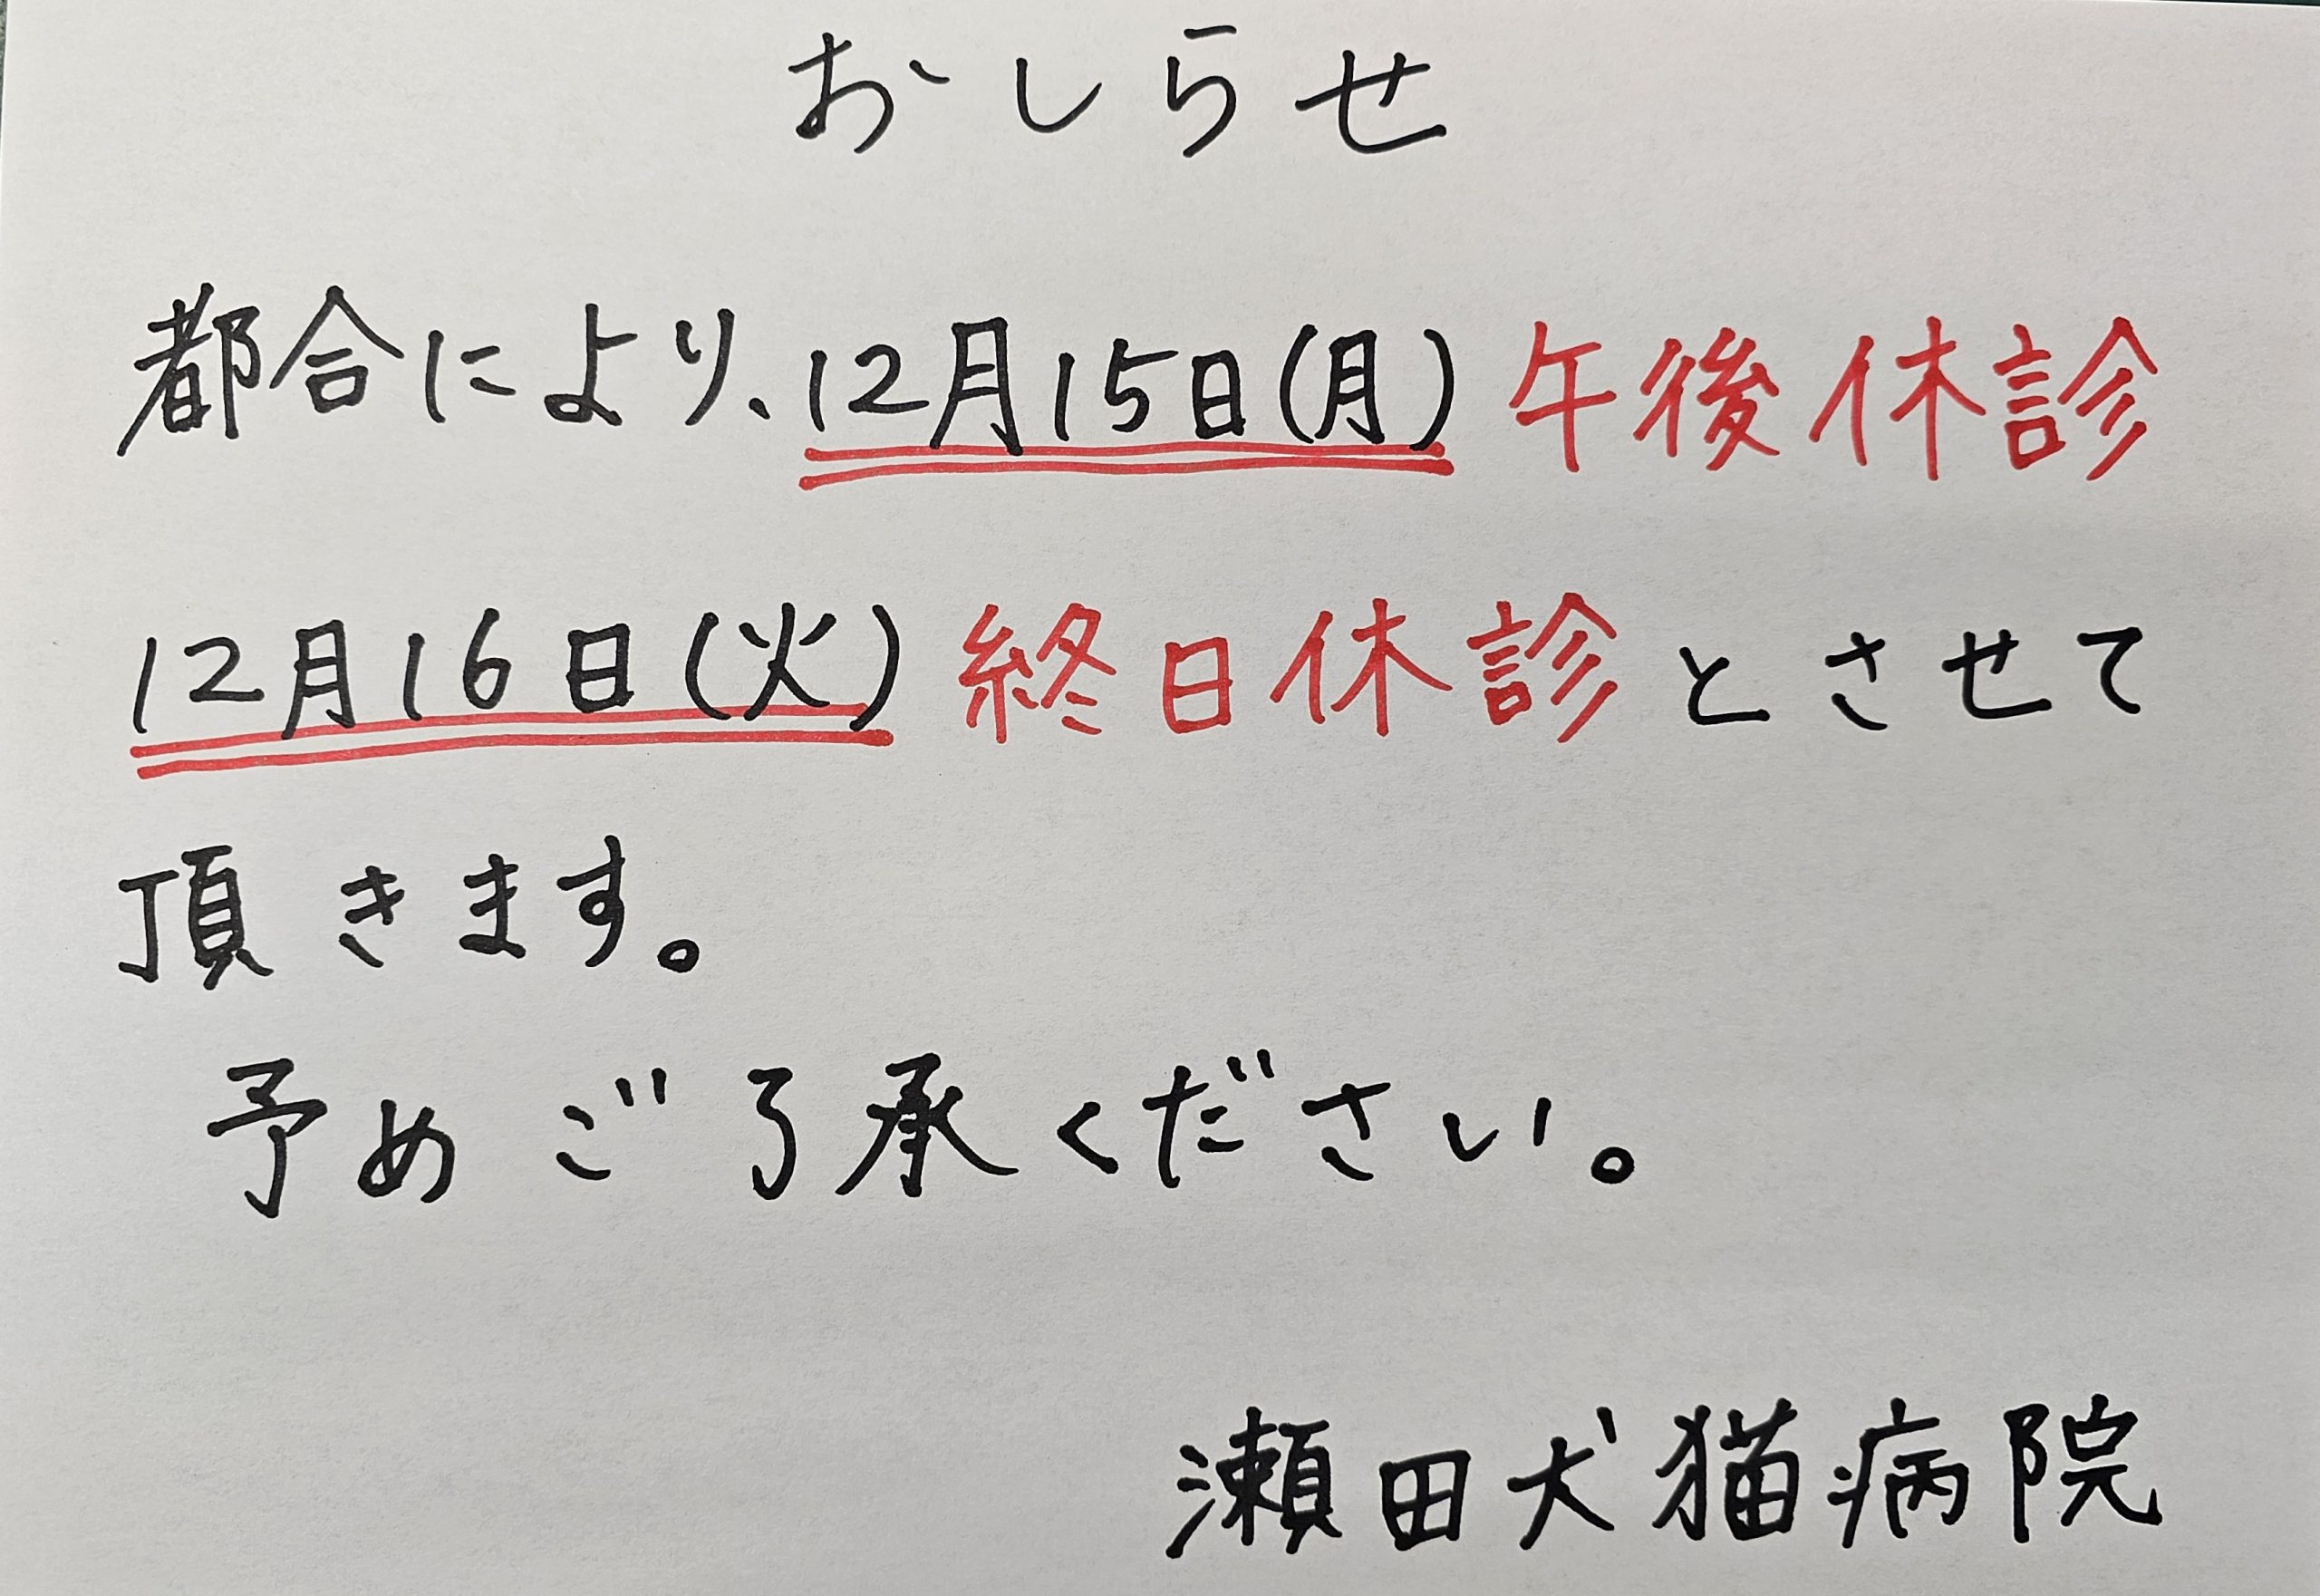 おしらせ
都合により、12月15日(月) 午後休診
12月16日(火) 終日休診とさせて
頂きます。
予めご了承ください。
瀬田犬猫病院